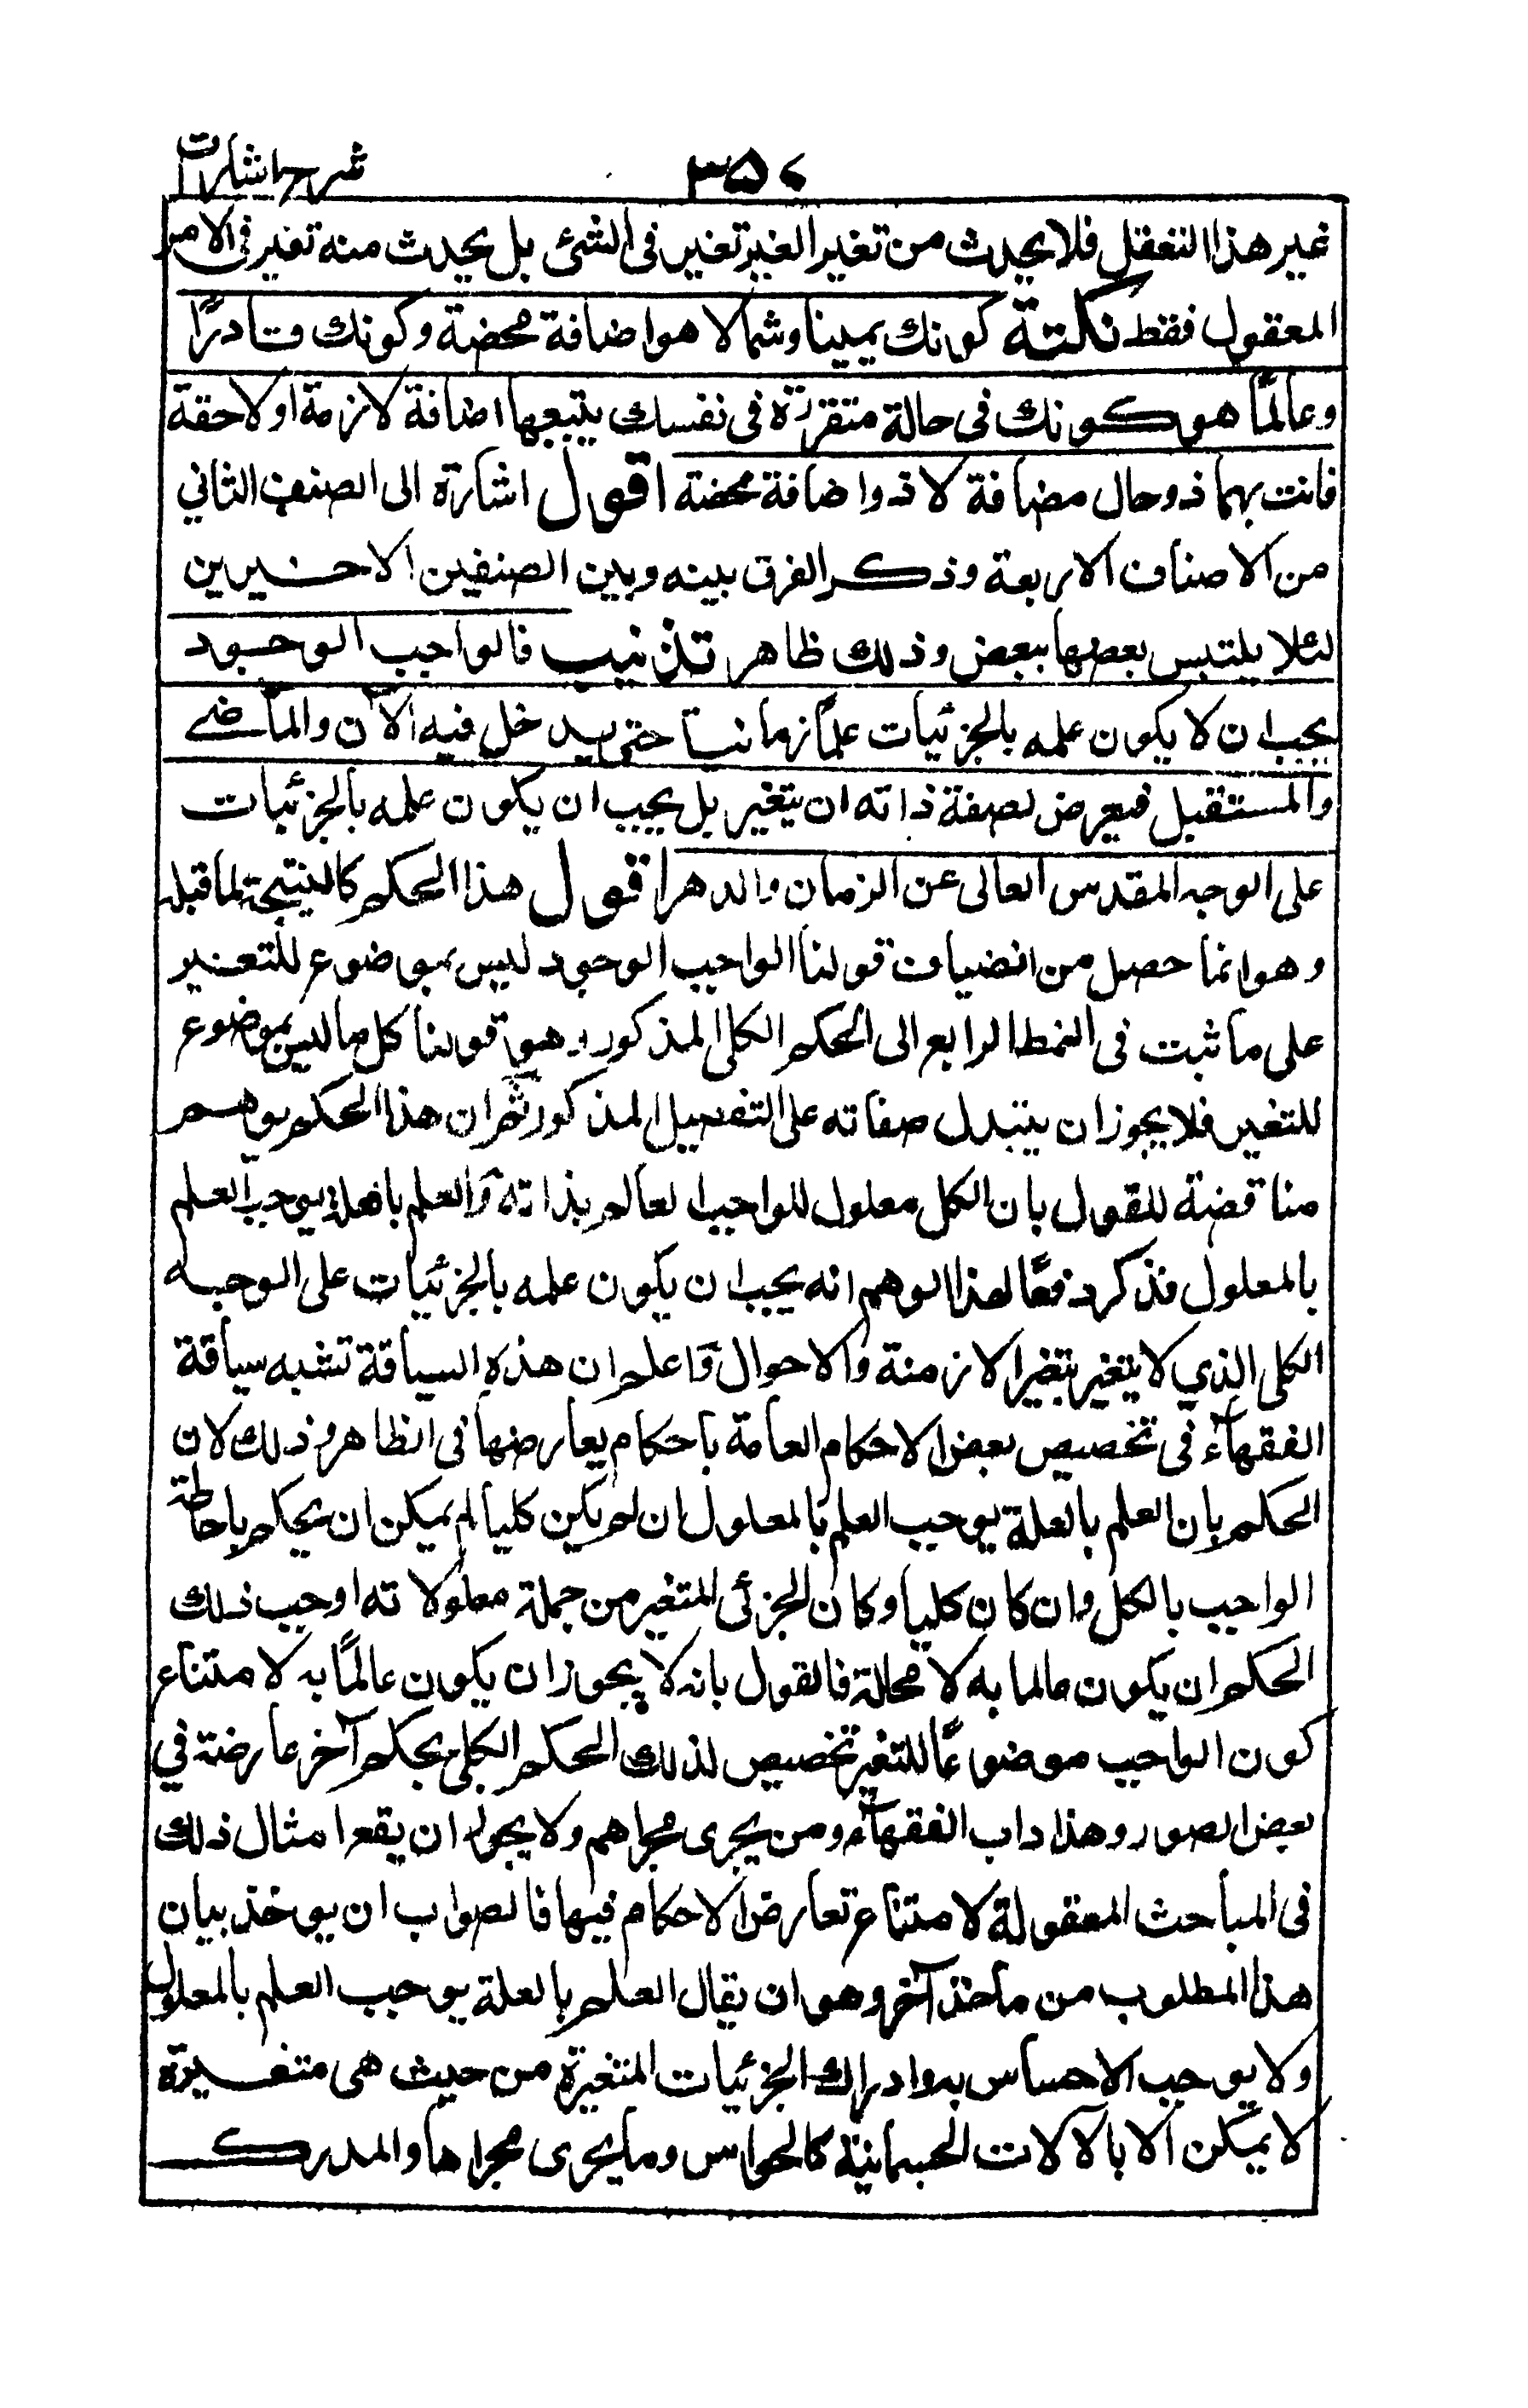 شرح اشارات
غير هذا التعقل فلا يحدث من تغير الغير تغير فى الشئ بل يحدث منه تغير فى الامر
المعقول فقط نكتة كونك يمينا وشمالا هو اضافة محضة وكونك قادرًا
وعالمًا هو كونك فى حالة متقررة فى نفسك يتبعها اضافة لازمة او لاحقة
فانت بهما ذو حال مضافة لا ذو اضافة محضة اقول اشارة الى الصنف الثاني
من الاصناف الاربعة وذكر الفرق بينه وبين الصنفين الاخيرين
لئلا يلتبس بعضها ببعض وذلك ظاهر تذنيب فالواجب الوجود
يجب ان لا يكون علمه بالجزئيات علمًا زمانيا حتى يدخل فيه الآن والماضي
والمستقبل فيعرض لصفة ذاته ان يتغير بل يجب ان يكون علمه بالجزئيات
على الوجه المقدس العالى عن الزمان والدهر اقول هذا الحكم كالنتيجة لما قبله
وهو انما حصل من انضياف قولنا الواجب الوجود ليس بموضوع للتغير
على ما ثبت فى النمط الرابع الى الحكم الكلى المذكور وهو قولنا كل ما ليس بموضوع
للتغير فلا يجوز ان يتبدل صفاته على التفصيل المذكور ثم ان هذا الحكم يوهم
مناقضة للقول بان الكل معلول للواجب العالم بذاته والعلم بالعلة يوجب العلم
بالمعلول فذكر دفعًا لهذا الوهم انه يجب ان يكون علمه بالجزئيات على الوجه
الكلى الذي لا يتغير بتغير الازمنة والاحوال واعلم ان هذه السياقة تشبه سياقة
الفقهآء فى تخصيص بعض الاحكام العامة باحكام يعارضها فى الظاهر وذلك لان
الحكم بان العلم بالعلة يوجب العلم بالمعلول ان لم يكن كليا لم يمكن ان يحكم باحاطة
الواجب بالكل وان كان كليا وكان الجزئى المتغير من جملة معلولاته اوجب ذلك
الحكم ان يكون عالما به لا محالة فالقول بانه لا يجوز ان يكون عالمًا به لامتناع
كون الواجب موضوعًا للتغير تخصيص لذلك الحكم الكلى بحكم آخر عارضة في
بعض الصور وهذا داب الفقهآء ومن يجرى مجراهم ولا يجوز ان يقع امثال ذلك
فى المباحث المعقولة لامتناع تعارض الاحكام فيها فالصواب ان يوخذ بيان
هذا المطلوب من ماخذ آخر وهو ان يقال العلم بالعلة يوجب العلم بالمعلول
ولا يوجب الاحساس به وادراك الجزئيات المتغيرة من حيث هى متغيرة
لا يمكن الا بالآلات الجسمانية كالحواس وما يجرى مجراها والمدرك